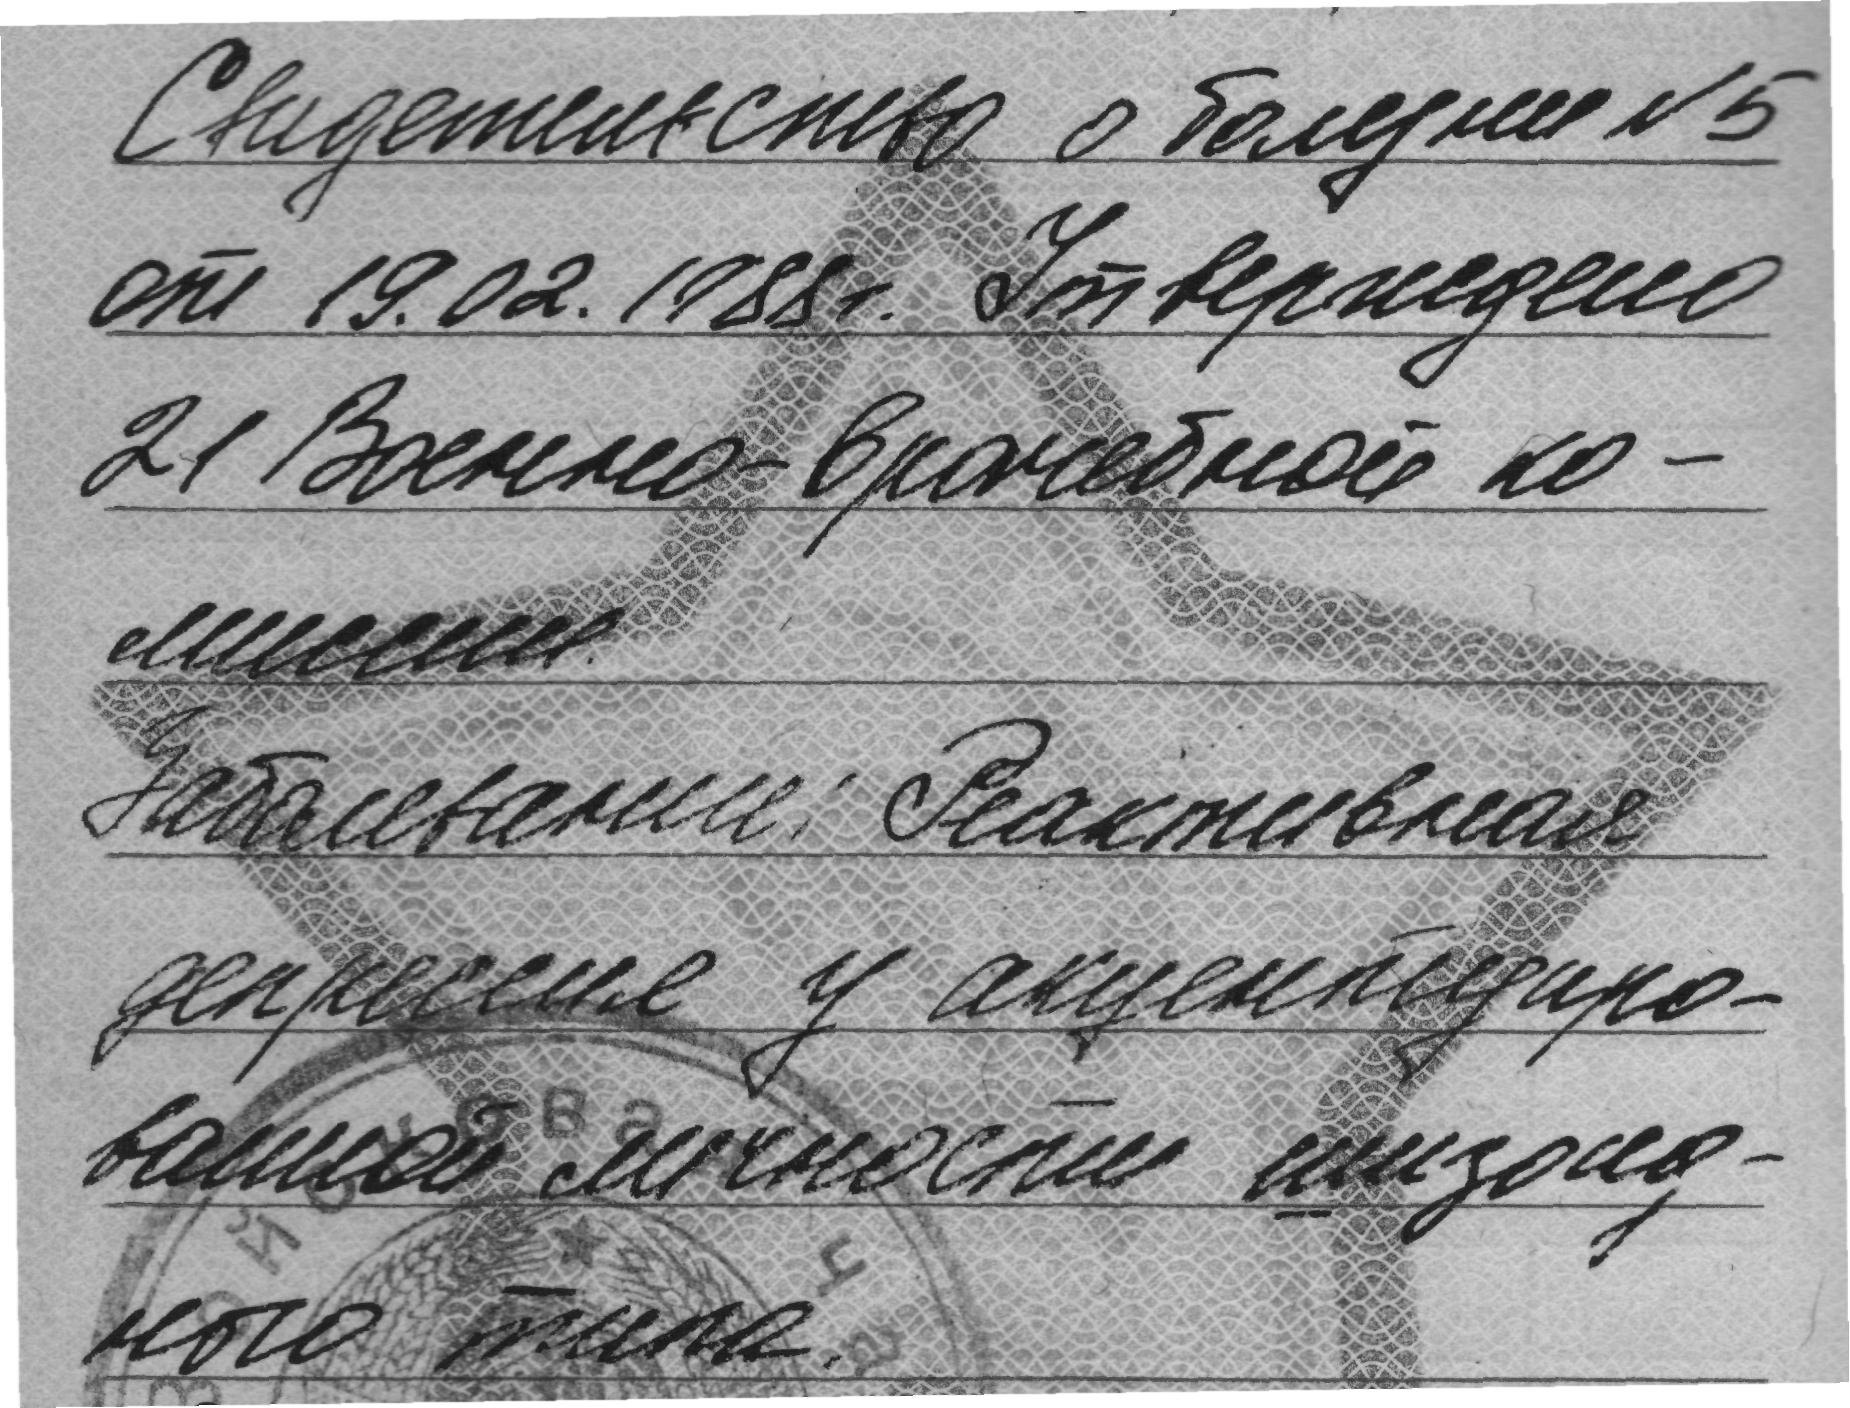 Свидетельство о болезни №5
от 19.02.1988г. Утверждено
21 Военно-врачебной ко-
миссии.
Заболевание: Реактивная
депрессия у акцентуиро-
ванной личности шизоид-
ного типа.
Войскова